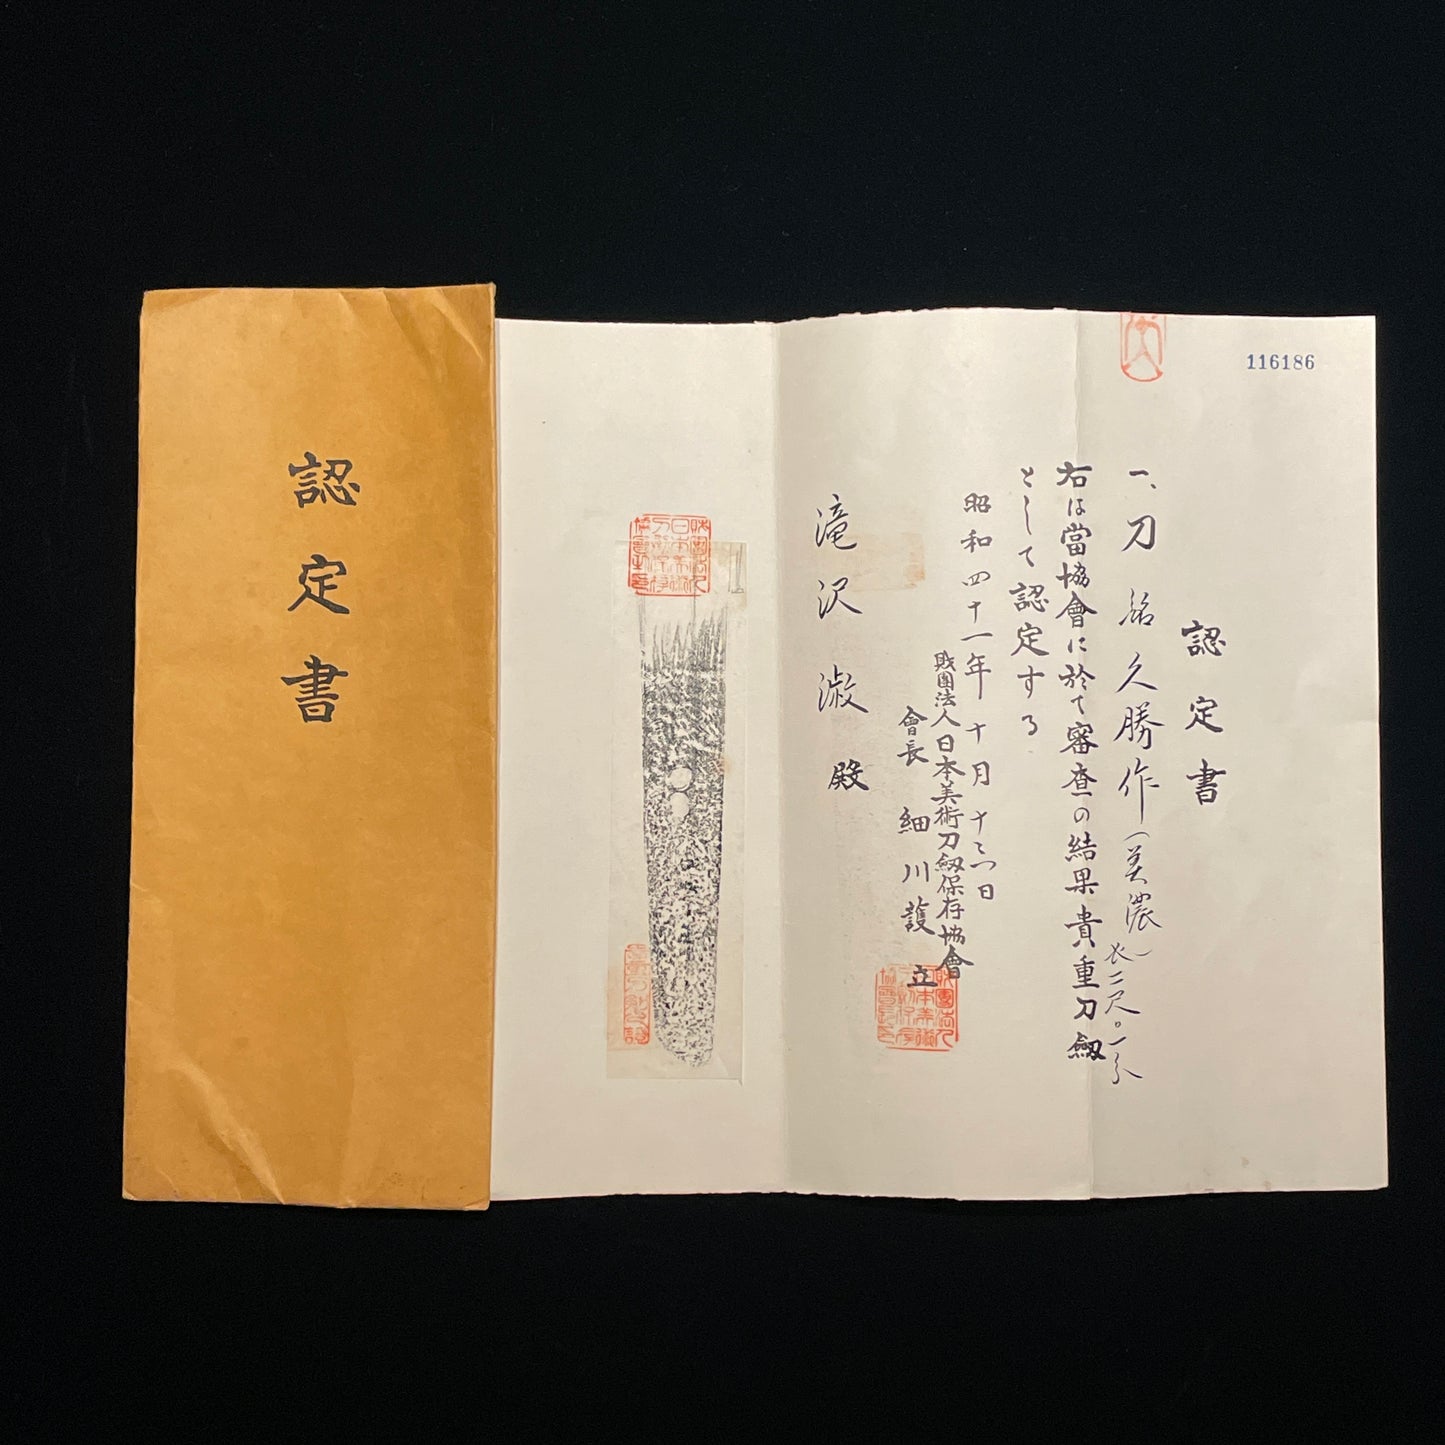 認定書
116186
認定書
一、刀 銘 久勝作（美濃） 長二尺〇一分
右は當協會に於て審査の結果貴重刀劔
として認定する
昭和四十一年十月十三日
財團法人日本美術刀劔保存協會
會長 細川護立
滝沢淑殿